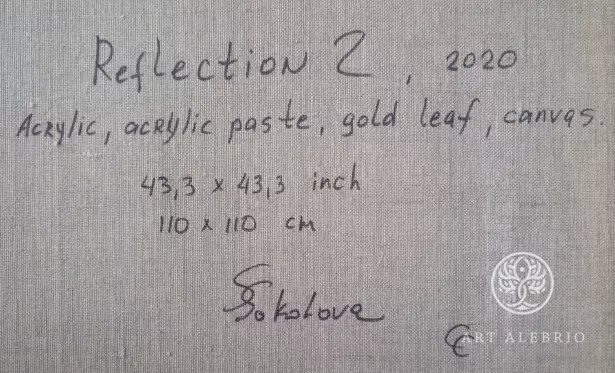 Reflection 2, 2020
Acrylic, acrylic paste, gold leaf, canvas.
43,3 x 43,3 inch
110 x 110 cm
Sokolova
ART ALEBRIO